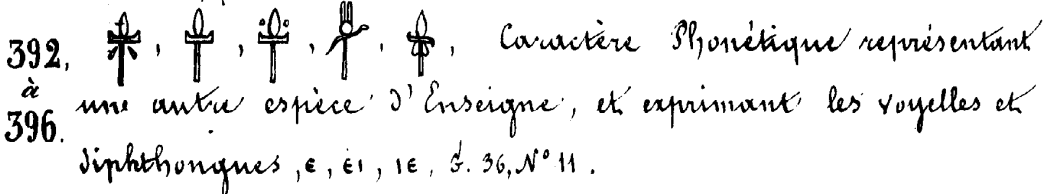 392. , , , . , Caractère Phonétique représentant
à une autre espèce d'Enseigne, et exprimant les voyelles et
396. diphthongues, ⲉ, ⲉⲓ, ⲓⲉ, G. 36, N° 11.